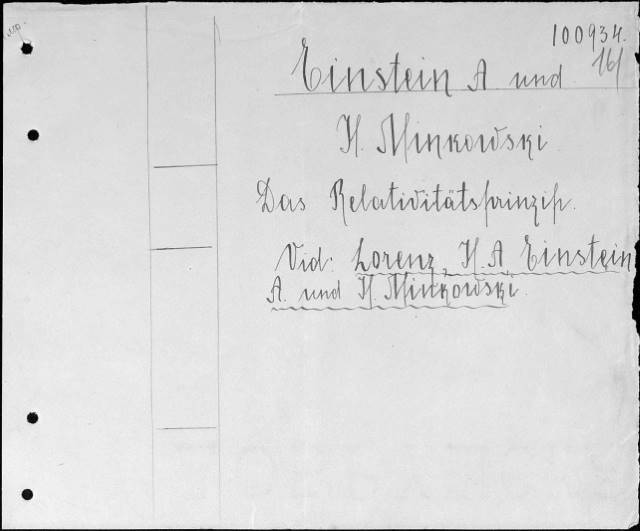 100934.
161
Einstein A und
H. Minkowski
Das Relativitätsprinzip.
Vid: Lorenz, H. A, Einstein
A. und H. Minkowski.